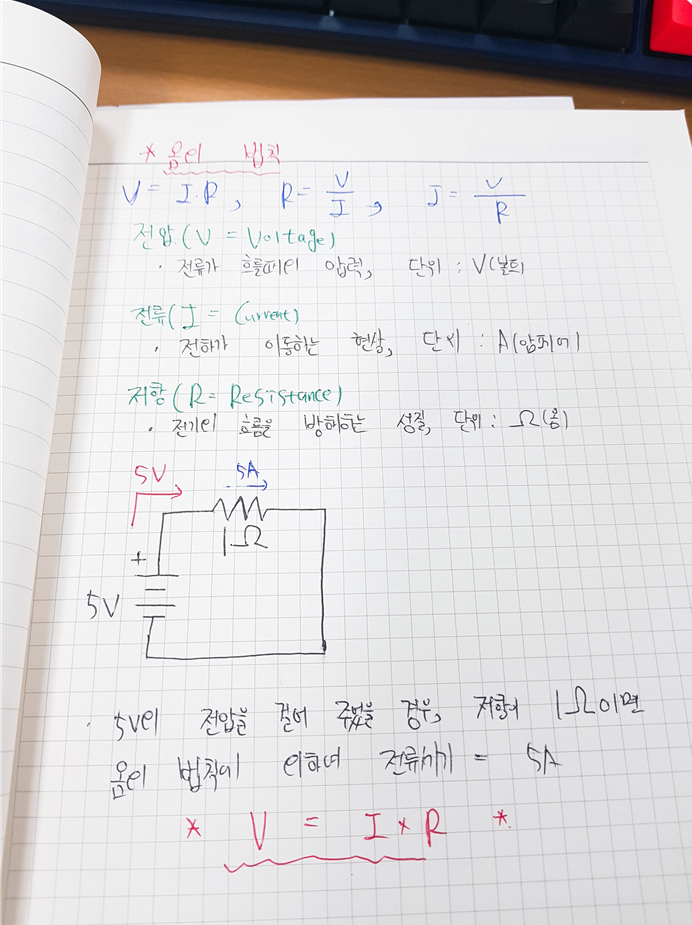 * 옴의 법칙
V = I.R, R = V/I, I = V/R
전압.(V = Voltage)
· 전류가 흐를때의 압력, 단위 : V(볼트)
전류(I = Current)
· 전하가 이동하는 현상, 단위 : A(암페어)
저항(R = Resistance)
· 전기의 흐름을 방해하는 성질, 단위 : Ω(옴)
5V
5A
1Ω
+
5V
· 5V의 전압을 걸어 주었을 경우, 저항이 1Ω이면
옴의 법칙에 의하여 전류세기 = 5A
* V = I × R *